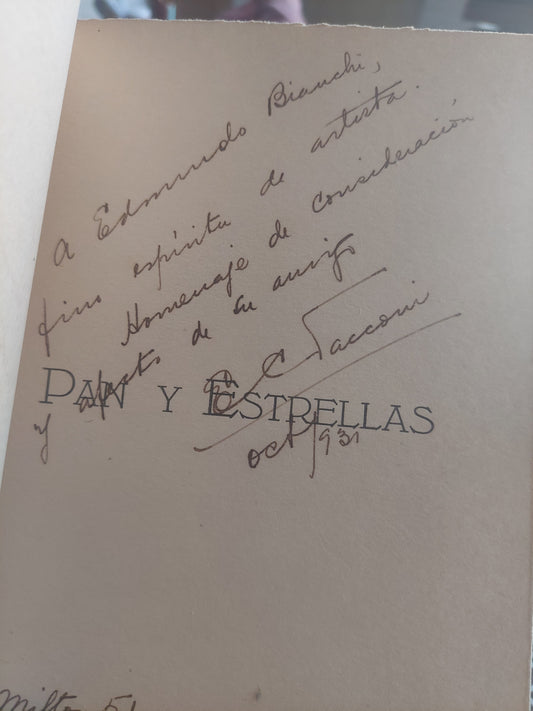 A Edmundo Bianchi,
fino espíritu de artista.
Homenaje de consideración
y afecto de su amigo
E C Tacconi
PAN Y ESTRELLAS
oct/931